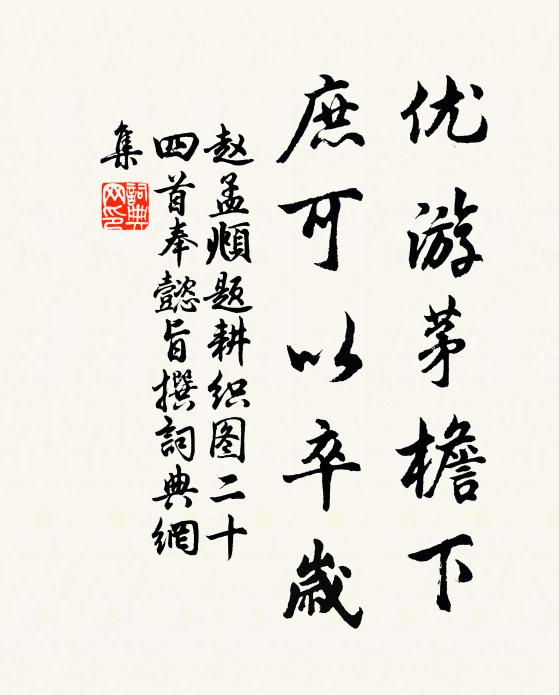 优游茅檐下
庶可以卒歲
赵孟頫题耕织图二十
四首奉懿旨撰詞典網
集
詞典網印